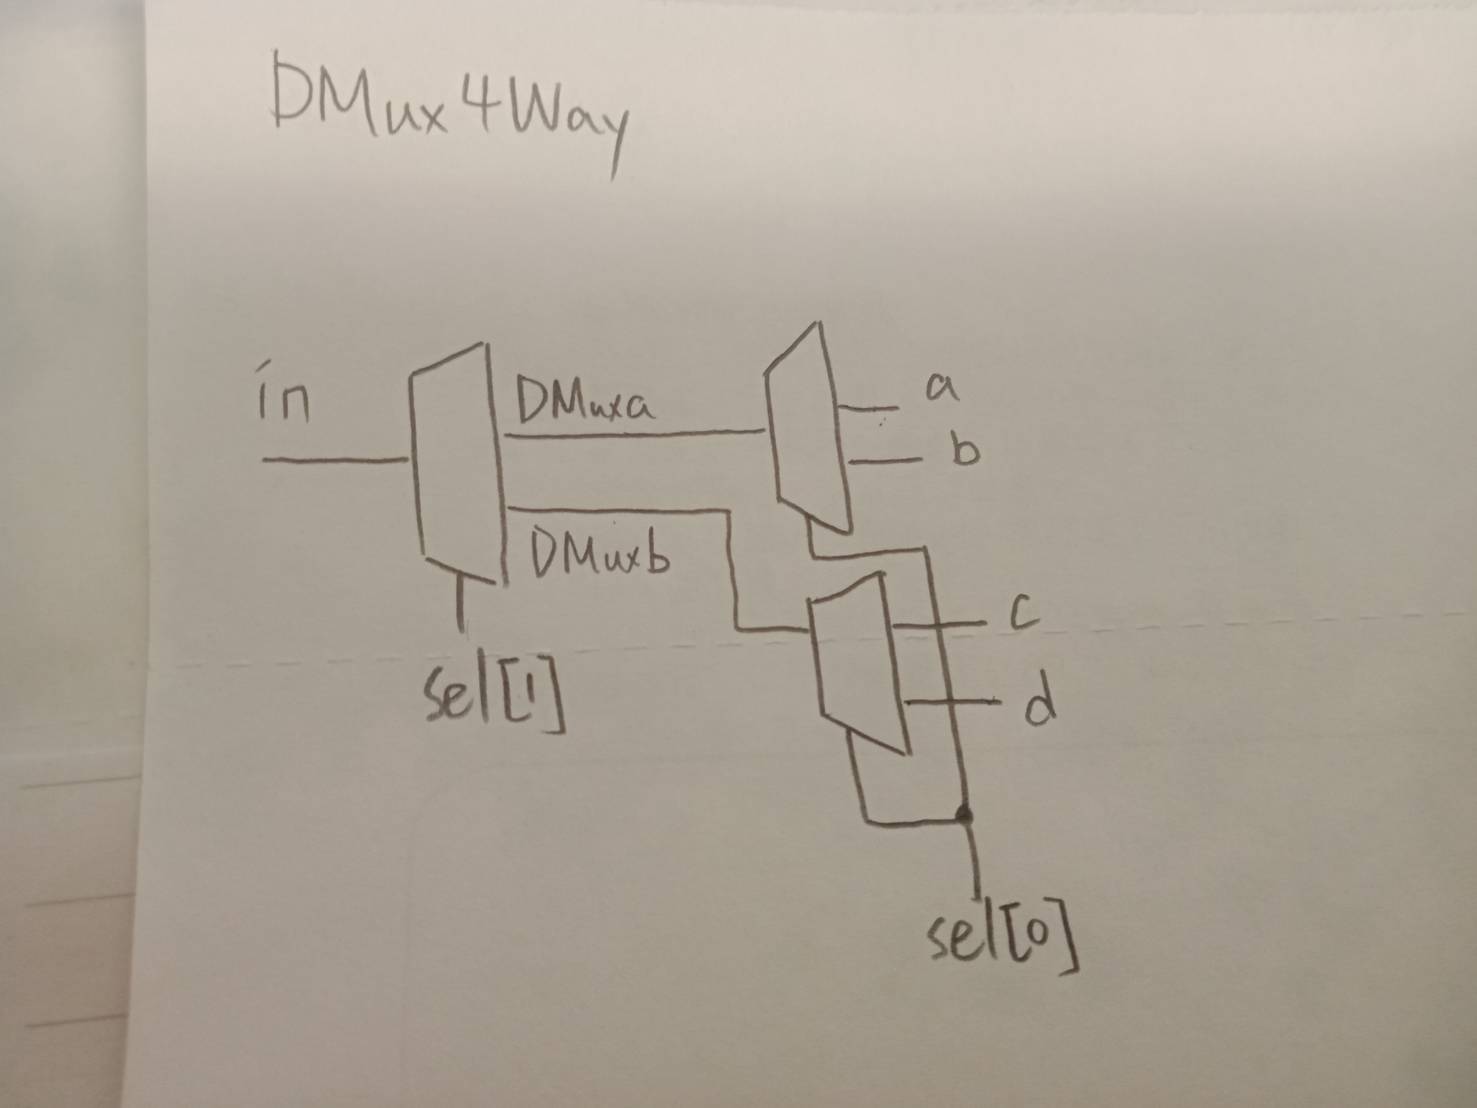 DMux4Way
in
DMuxa
a
b
DMuxb
c
sel[1]
d
sel[0]